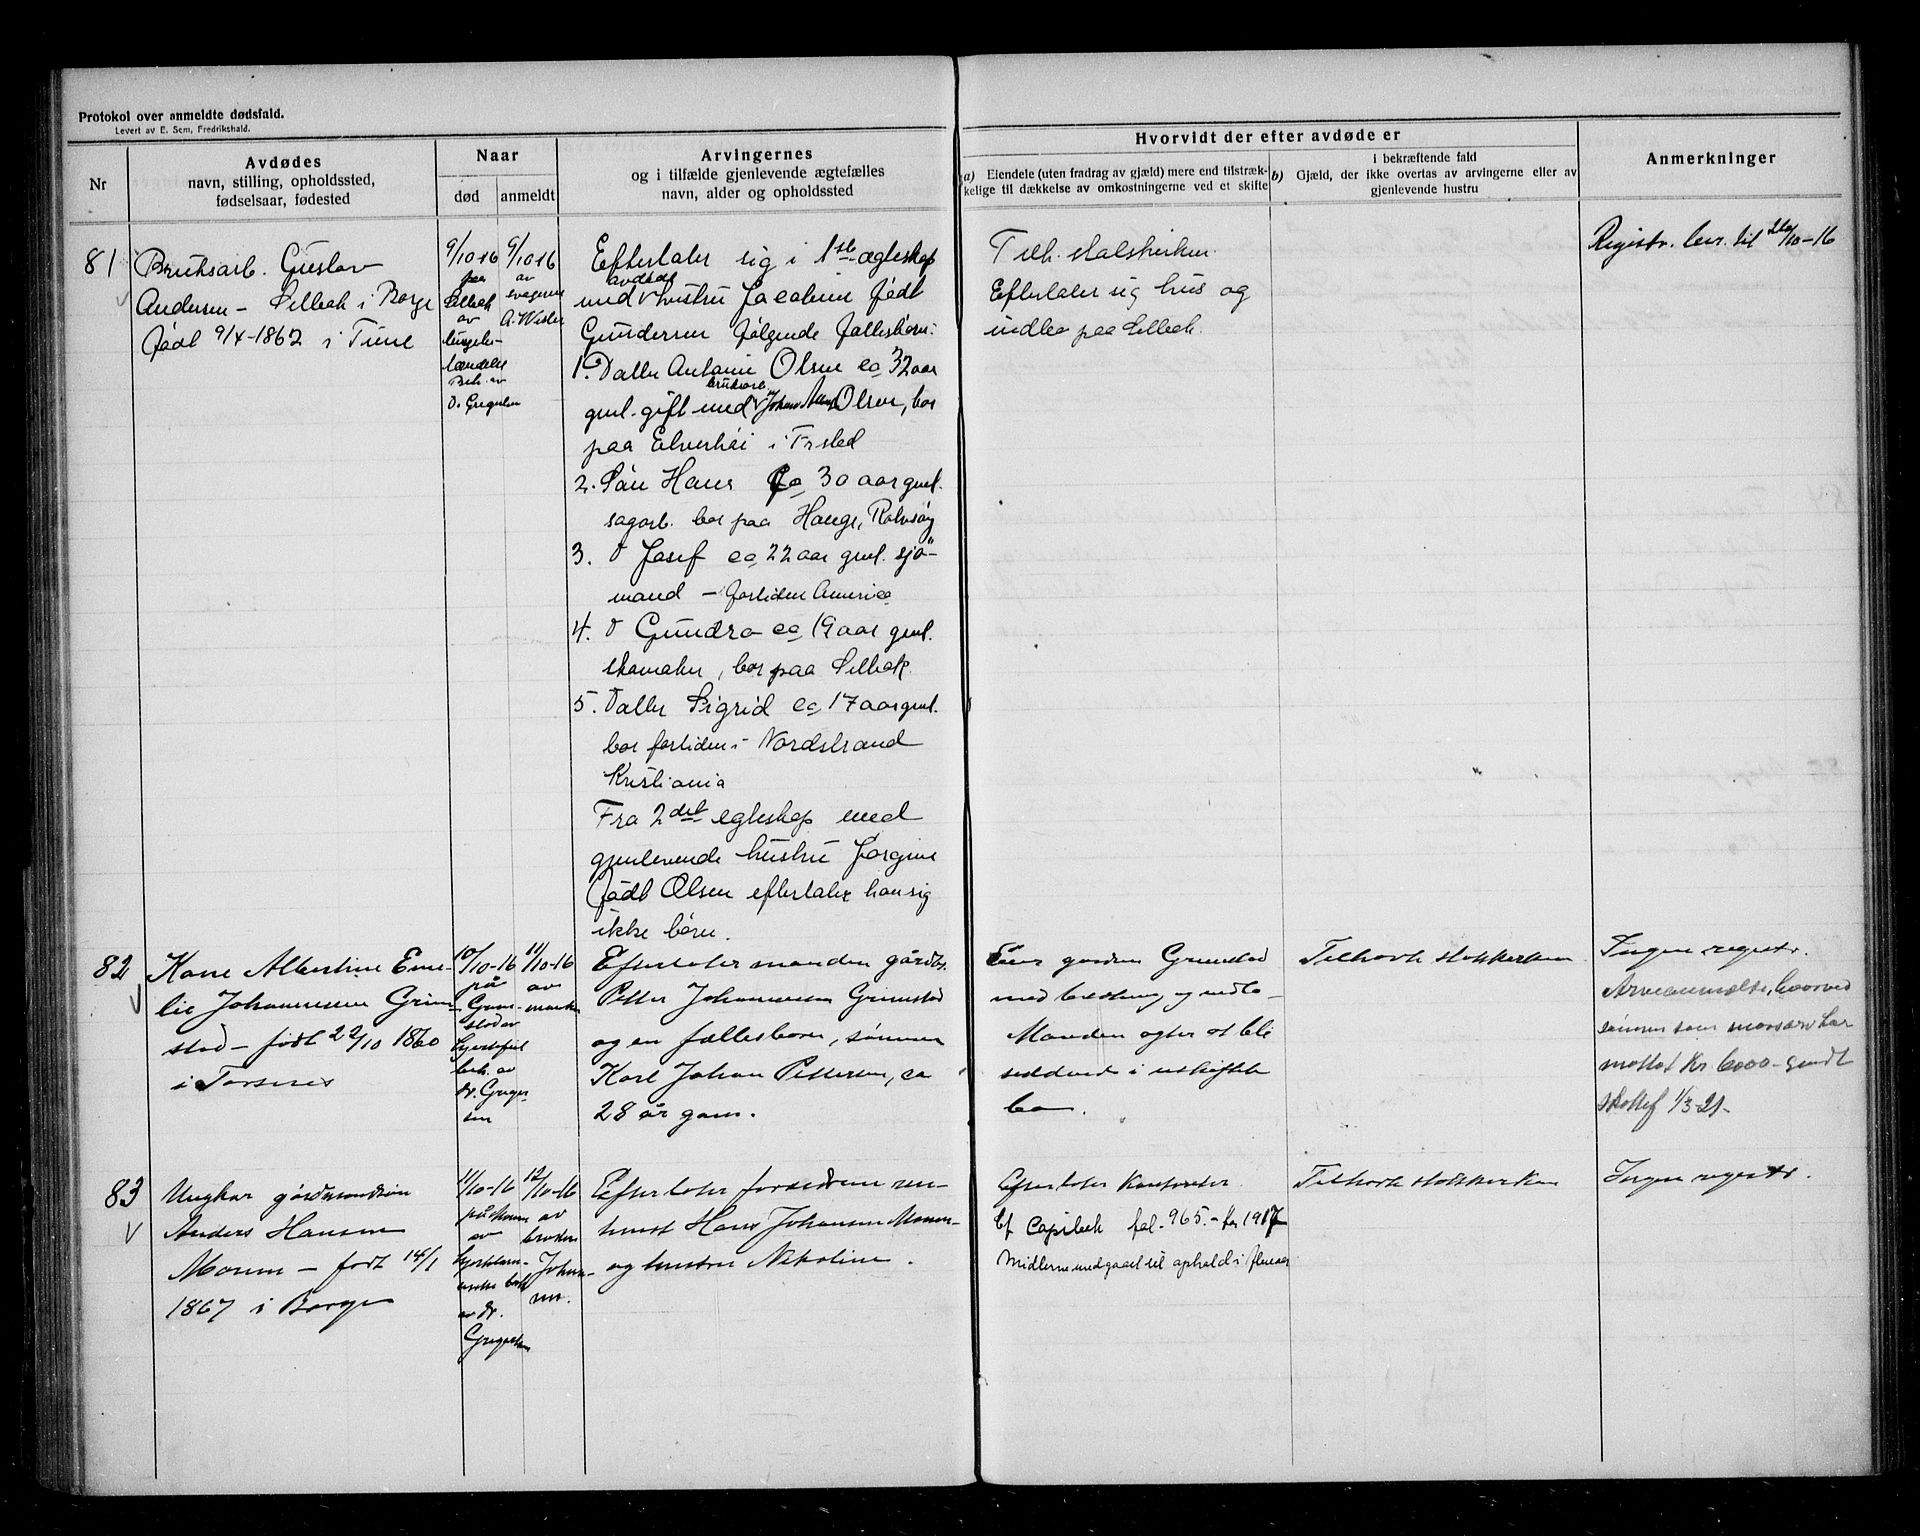 Protokol over anmeldte dødsfald.
Levert av E. Sem, Fredrikshald.
Nr
Avdødes
navn, stilling, opholdssted,
fødselsaar, fødested
Naar
død
anmeldt
Arvingernes
og i tilfælde gjenlevende ægtefælles
navn, alder og opholdssted
Hvorvidt der efter avdøde er
a) Eiendele (uten fradrag av gjæld) mere end tilstræk-
kelige til dækkelse av omkostningerne ved et skifte
i bekræftende fald
b) Gjæld, der ikke overtas av arvingerne eller av
gjenlevende hustru
Anmerkninger
81
Bruksarb. Gustav
Andersen – Selbak i Borge
født 9/4-1862 i Tune
9/10 16
paa
Selbak
av
lungebe-
tændelse
Beh. av
D. Gregersen
9/10 16
av
svageren
A.
Efterlater sig i 1ste ægteskap
avdøde
med hustru Jacobine født
Gundersen følgende fællesbørn:
1. Datter Antonie Olsen ca 32 aar
bruksarb.
gml. gift med Johan Olsen, bor
paa Elverhøi i Fr.sted
2. Søn Hans ca 30 aar gml.
sagarb. bor paa Hauge, Rolvsøy
3. D Josef ca 22 aar gml. sjø-
mand – fortiden America
4. D ca 19 aar gml.
skomaker, bor paa Selbak
5. Datter Sigrid ca 17 aar gml.
bor fortiden i Nordstrand
Kristiania
Fra 2det egteskap med
gjenlevende hustru Jørgine
født Olsen efterlater han sig
ikke børn.
Tilh. statskirken.
Efterlater sig hus og
indbo paa Selbak.
Registr. lev. til 26/10-16
82
Kone Albertine Eme-
lie Johannessen Grim-
stad – født 22/10 1860
i Torsnes
10/10-16
på
Grim-
stad av
hjertefeil
beh. av
dr. Greger-
sen
11/10-16
av
manden
Efterlater manden gårdbr.
Petter Johannessen Grimstad
og en fællesbarn, sønnen
Karl Johan Pettersen, ca
28 år gam.
Eier garden Grimstad
med besetning og indbo –
Manden agter at bli
siddende i uskiftet
bo.
Tilhørte statskirken
Ingen registr.
Arveanmeldse, hvorved
sønnen som morsarv har
mottat Kr 6000 – sendt
skattef 1/3-21 –
83
Ungkar gårdmandssøn
Anders Hansen
Moum – født 14/1
1867 i Borge
11/10-16
på Moum
av
beh.
av dr.
Gregersen
12/10-16
av
broderen
Johan-
sen.
Efterlater forældrene
Hans Johansen Moum
og hustru Nikoline.
Efterlater Kontanter.
fol. 965. – for 1917
Midlerne medgaaet til ophold i
Tilhørte statskirken
Ingen registr.